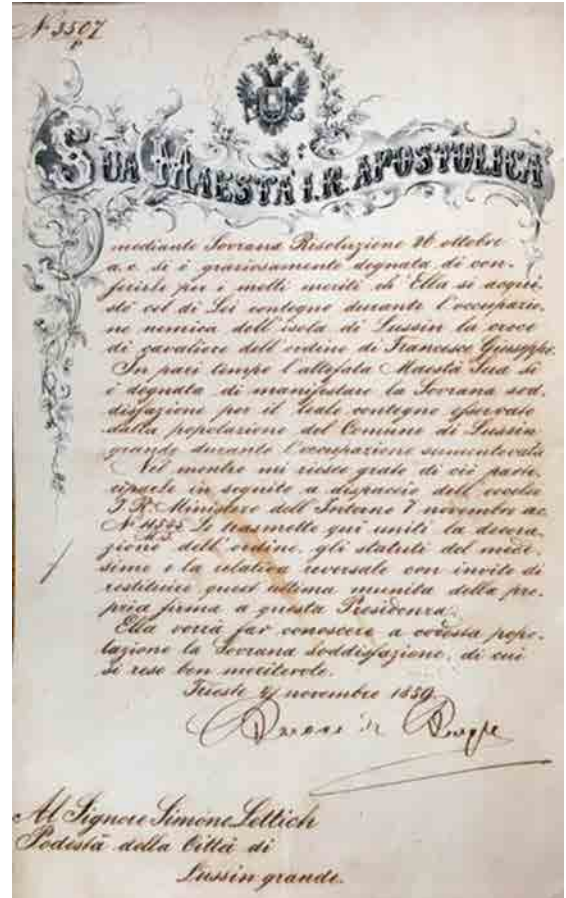 N. 3507
P
SUA MAESTÀ I. R. APOSTOLICA
mediante Sovrana Risoluzione 26 ottobre
a. c. si è graziosamente degnata di con-
ferirle per i molti meriti ch'Ella si acqui-
stò col di Lei contegno durante l'occupazio-
ne nemica dell'isola di Lussin la croce
di cavaliere dell'ordine di Francesco Giuseppe.
In pari tempo l'altefata Maestà Sua si
è degnata di manifestare la Sovrana sod-
disfazione per il leale contegno osservato
dalla popolazione del Comune di Lussin
grande durante l'occupazione summentovata.
Nel mentre mi riesce grato di ciò parte-
ciparle in seguito a dispaccio dell'eccelso
I. R. Ministero dell'Interno 7 novembre a.c.
Le trasmetto qui uniti la decora-
zione dell'ordine, gli statuti del mede-
simo e la relativa reversale con invito di
restituire quest'ultima munita della pro-
pria firma a questa Presidenza.
Ella vorrà far conoscere a codesta popo-
lazione la Sovrana soddisfazione, di cui
si rese ben meritevole.
Trieste novembre 1859.
Al Signore Simone Lettich
Podestà della Città di
Lussin grande.